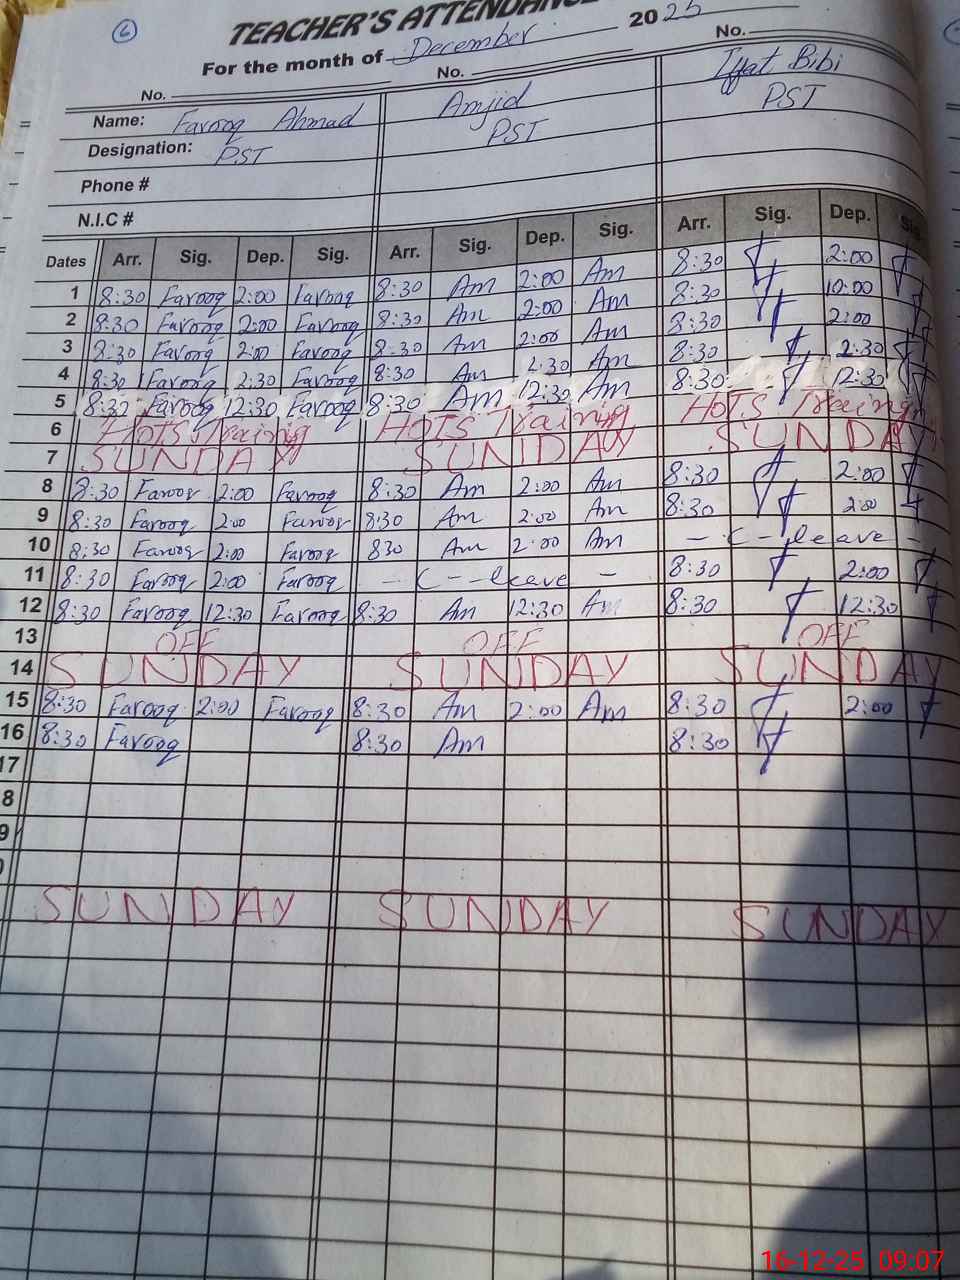 6
TEACHER'S ATTENDANC
For the month of December 2025
No. No. No.
Name: Farooq Ahmad Amjid Bibi
Designation: PST PST PST
Phone #
N.I.C #
Dates Arr. Sig. Dep. Sig. Arr. Sig. Dep. Sig. Arr. Sig. Dep. Sig.
1 8:30 Farooq 2:00 Farooq 8:30 Am 2:00 Am 8:30 2:00
2 8:30 Farooq 2:00 Farooq 8:30 Am 2:00 Am 8:30 10:00
3 8:30 Farooq 2:00 Farooq 8:30 Am 2:00 Am 8:30 2:00
4 8:30 Farooq 2:30 Farooq 8:30 Am 2.30 Am 8:30 2:30
5 8:30 Farooq 12:30 Farooq 8:30 Am 12:30 Am 8:30 12:30
6 HOTS Training HOTS Training HOTS Training
7 SUNDAY SUNDAY SUNDAY
8 8:30 Farooq 2:00 Farooq 8:30 Am 2:00 Am 8:30 2:00
9 8:30 Farooq 2:00 Farooq 8:30 Am 2:00 Am 8:30 2:00
10 8:30 Farooq 2:00 Farooq 830 Am 2:00 Am - C - leave -
11 8:30 Farooq 2:00 Farooq - C -- leave - 8:30 2:00
12 8:30 Farooq 12:30 Farooq 8:30 Am 12:30 Am 8:30 12:30
13 OFF OFF OFF
14 SUNDAY SUNDAY SUNDAY
15 8:30 Farooq 2:00 Farooq 8:30 Am 2:00 Am 8:30 2:00
16 8:30 Farooq 8:30 Am 8:30
17
8
9
SUNDAY SUNDAY SUNDAY
16-12-25 09:07